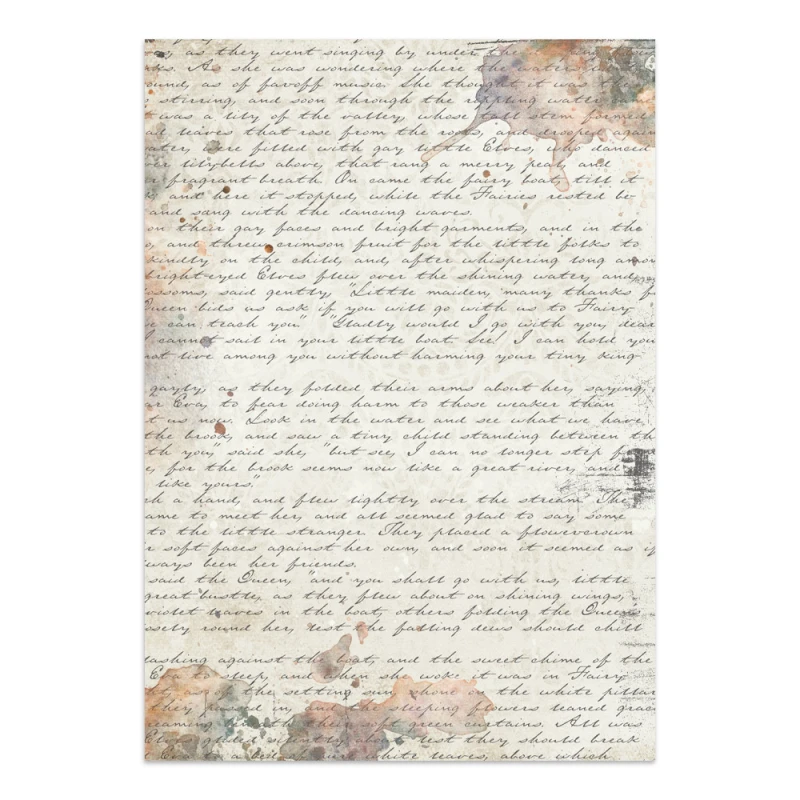 as they went singing by under the
As she was wondering where the water
ound, as of faroff music. She thought it was
stirring, and soon through the rippling water
was a lily of the valley, whose tall stem formed
leaves that rose from the roots, and drooped again
ater, were filled with gay little Elves, who danced
er lilybells above, that rang a merry peal, and
fragrant breath. On came the fairy boat, till it
and here it stopped, while the Fairies rested be
and sang with the dancing waves.
on their gay faces and bright garments, and in the
o, and threw crimson fruit for the little folks to
kindly on the child, and, after whispering long amon
bright-eyed Elves flew over the shining water, and
ossoms, said gently, "Little maiden, many thanks f
Queen bids us ask if you will go with us to Fairy
we can teach you." "Gladly would I go with you, dear
I cannot sail in your little boat. See! I can hold you
not live among you without harming your tiny king
gayly, as they folded their arms about her, saying,
ar Eva, to fear doing harm to those weaker than
t us now. Look in the water and see what we have
the brook, and saw a tiny child standing between th
th you," said she, "but see, I can no longer step
e, for the brook seems now like a great river, and
like yours."
ch a hand, and flew lightly over the stream. The
ame to meet her, and all seemed glad to say some
to the little stranger. They placed a flowercrown
r soft faces against her own, and soon it seemed as if
lways been her friends.
said the Queen, "and you shall go with us, little
great bustle, as they flew about on shining wings,
violet leaves in the boat; others folding the Queen's
osely round her, lest the falling dews should chill
lashing against the boat, and the sweet chime of the
Eva to sleep, and when she woke it was in Fairy
as of the setting sun, shone on the white pillar
they passed in, and the sleeping flowers leaned grac
reaming their soft green curtains. All was
Elves glided silently about, lest they should break
Eva to a bed of white leaves, above which